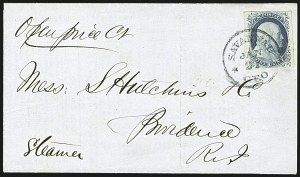 Open price Ct
SAVANNAH
GEO
Mess: S Hutchins
Providence
R.I
Steamer